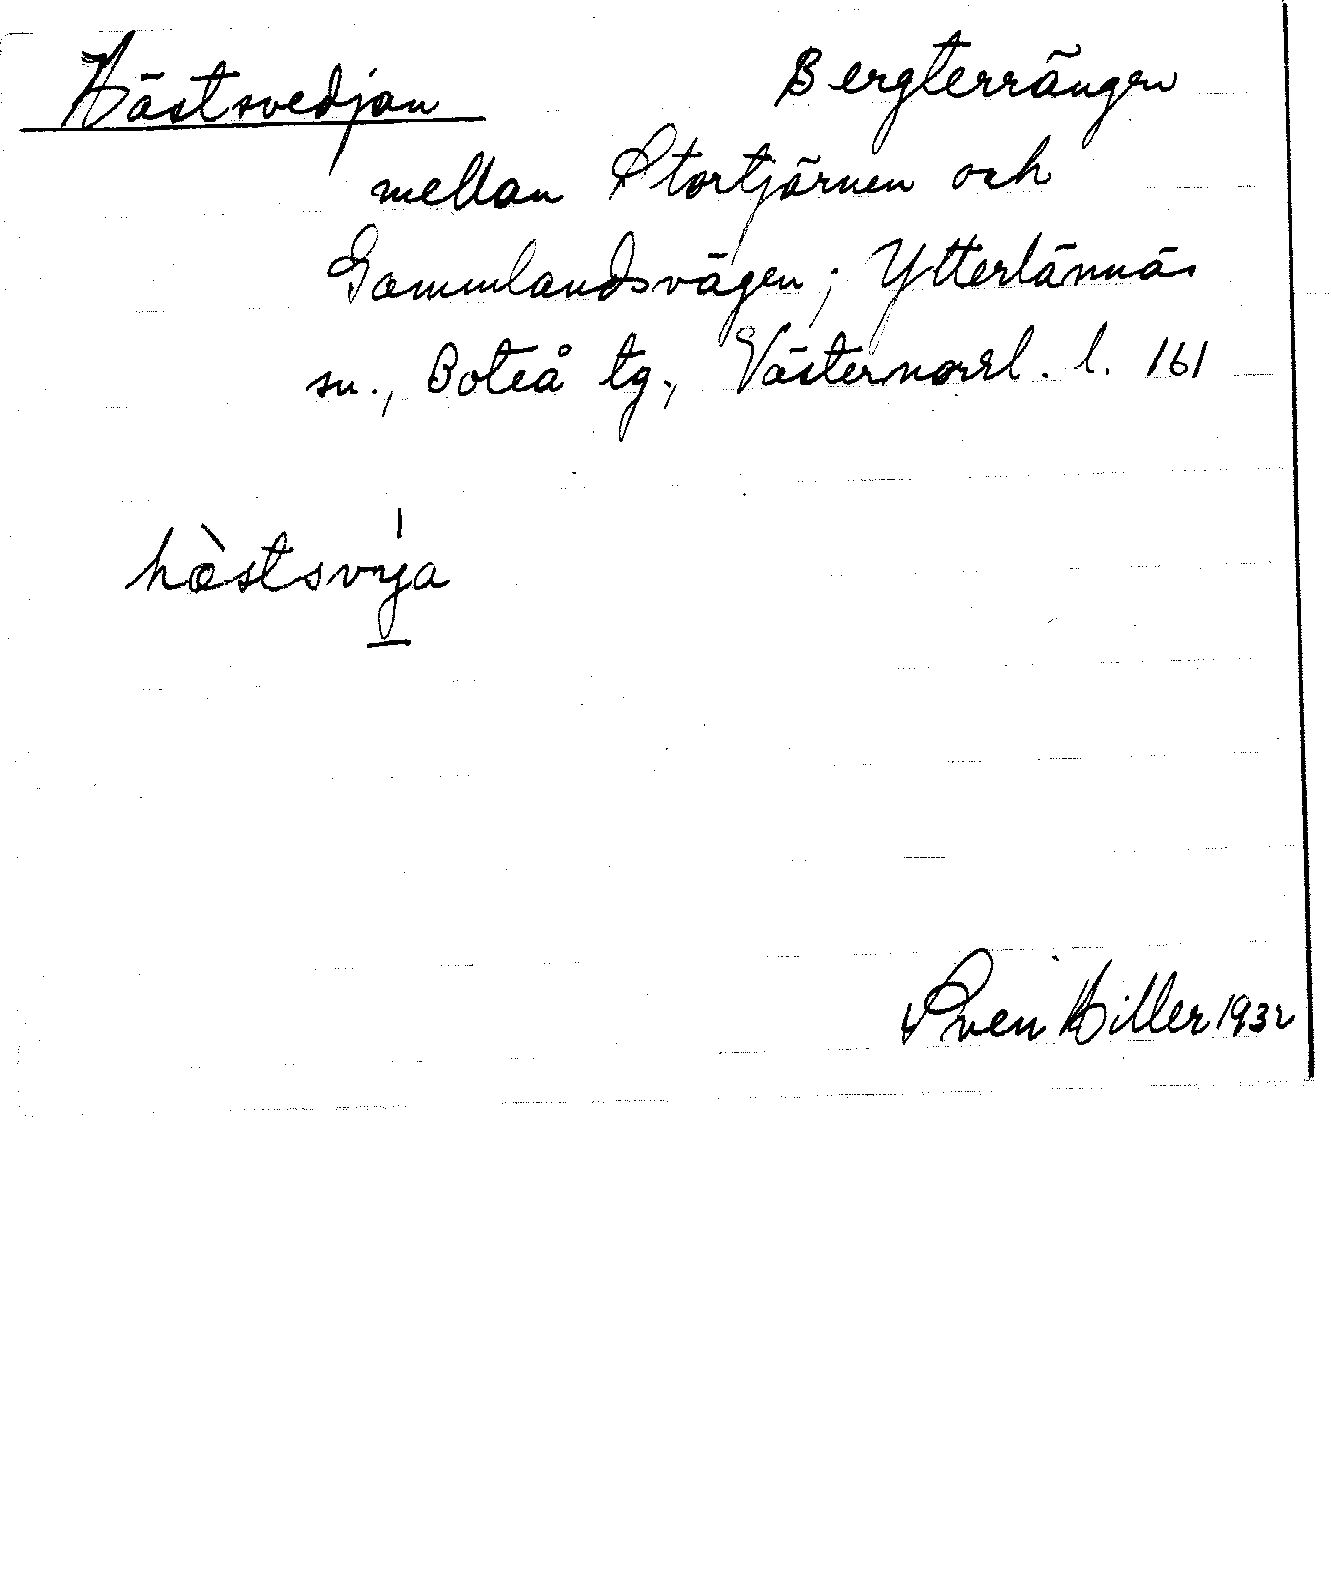 Hästsvedjan Bergterrängen
mellan Stortjärnen och
Gammlandsvägen; Ytterlännäs
sn., Boteå tg., Västernorrl. l. 161
hæ̀stsvyja
Sven Hiller 1932